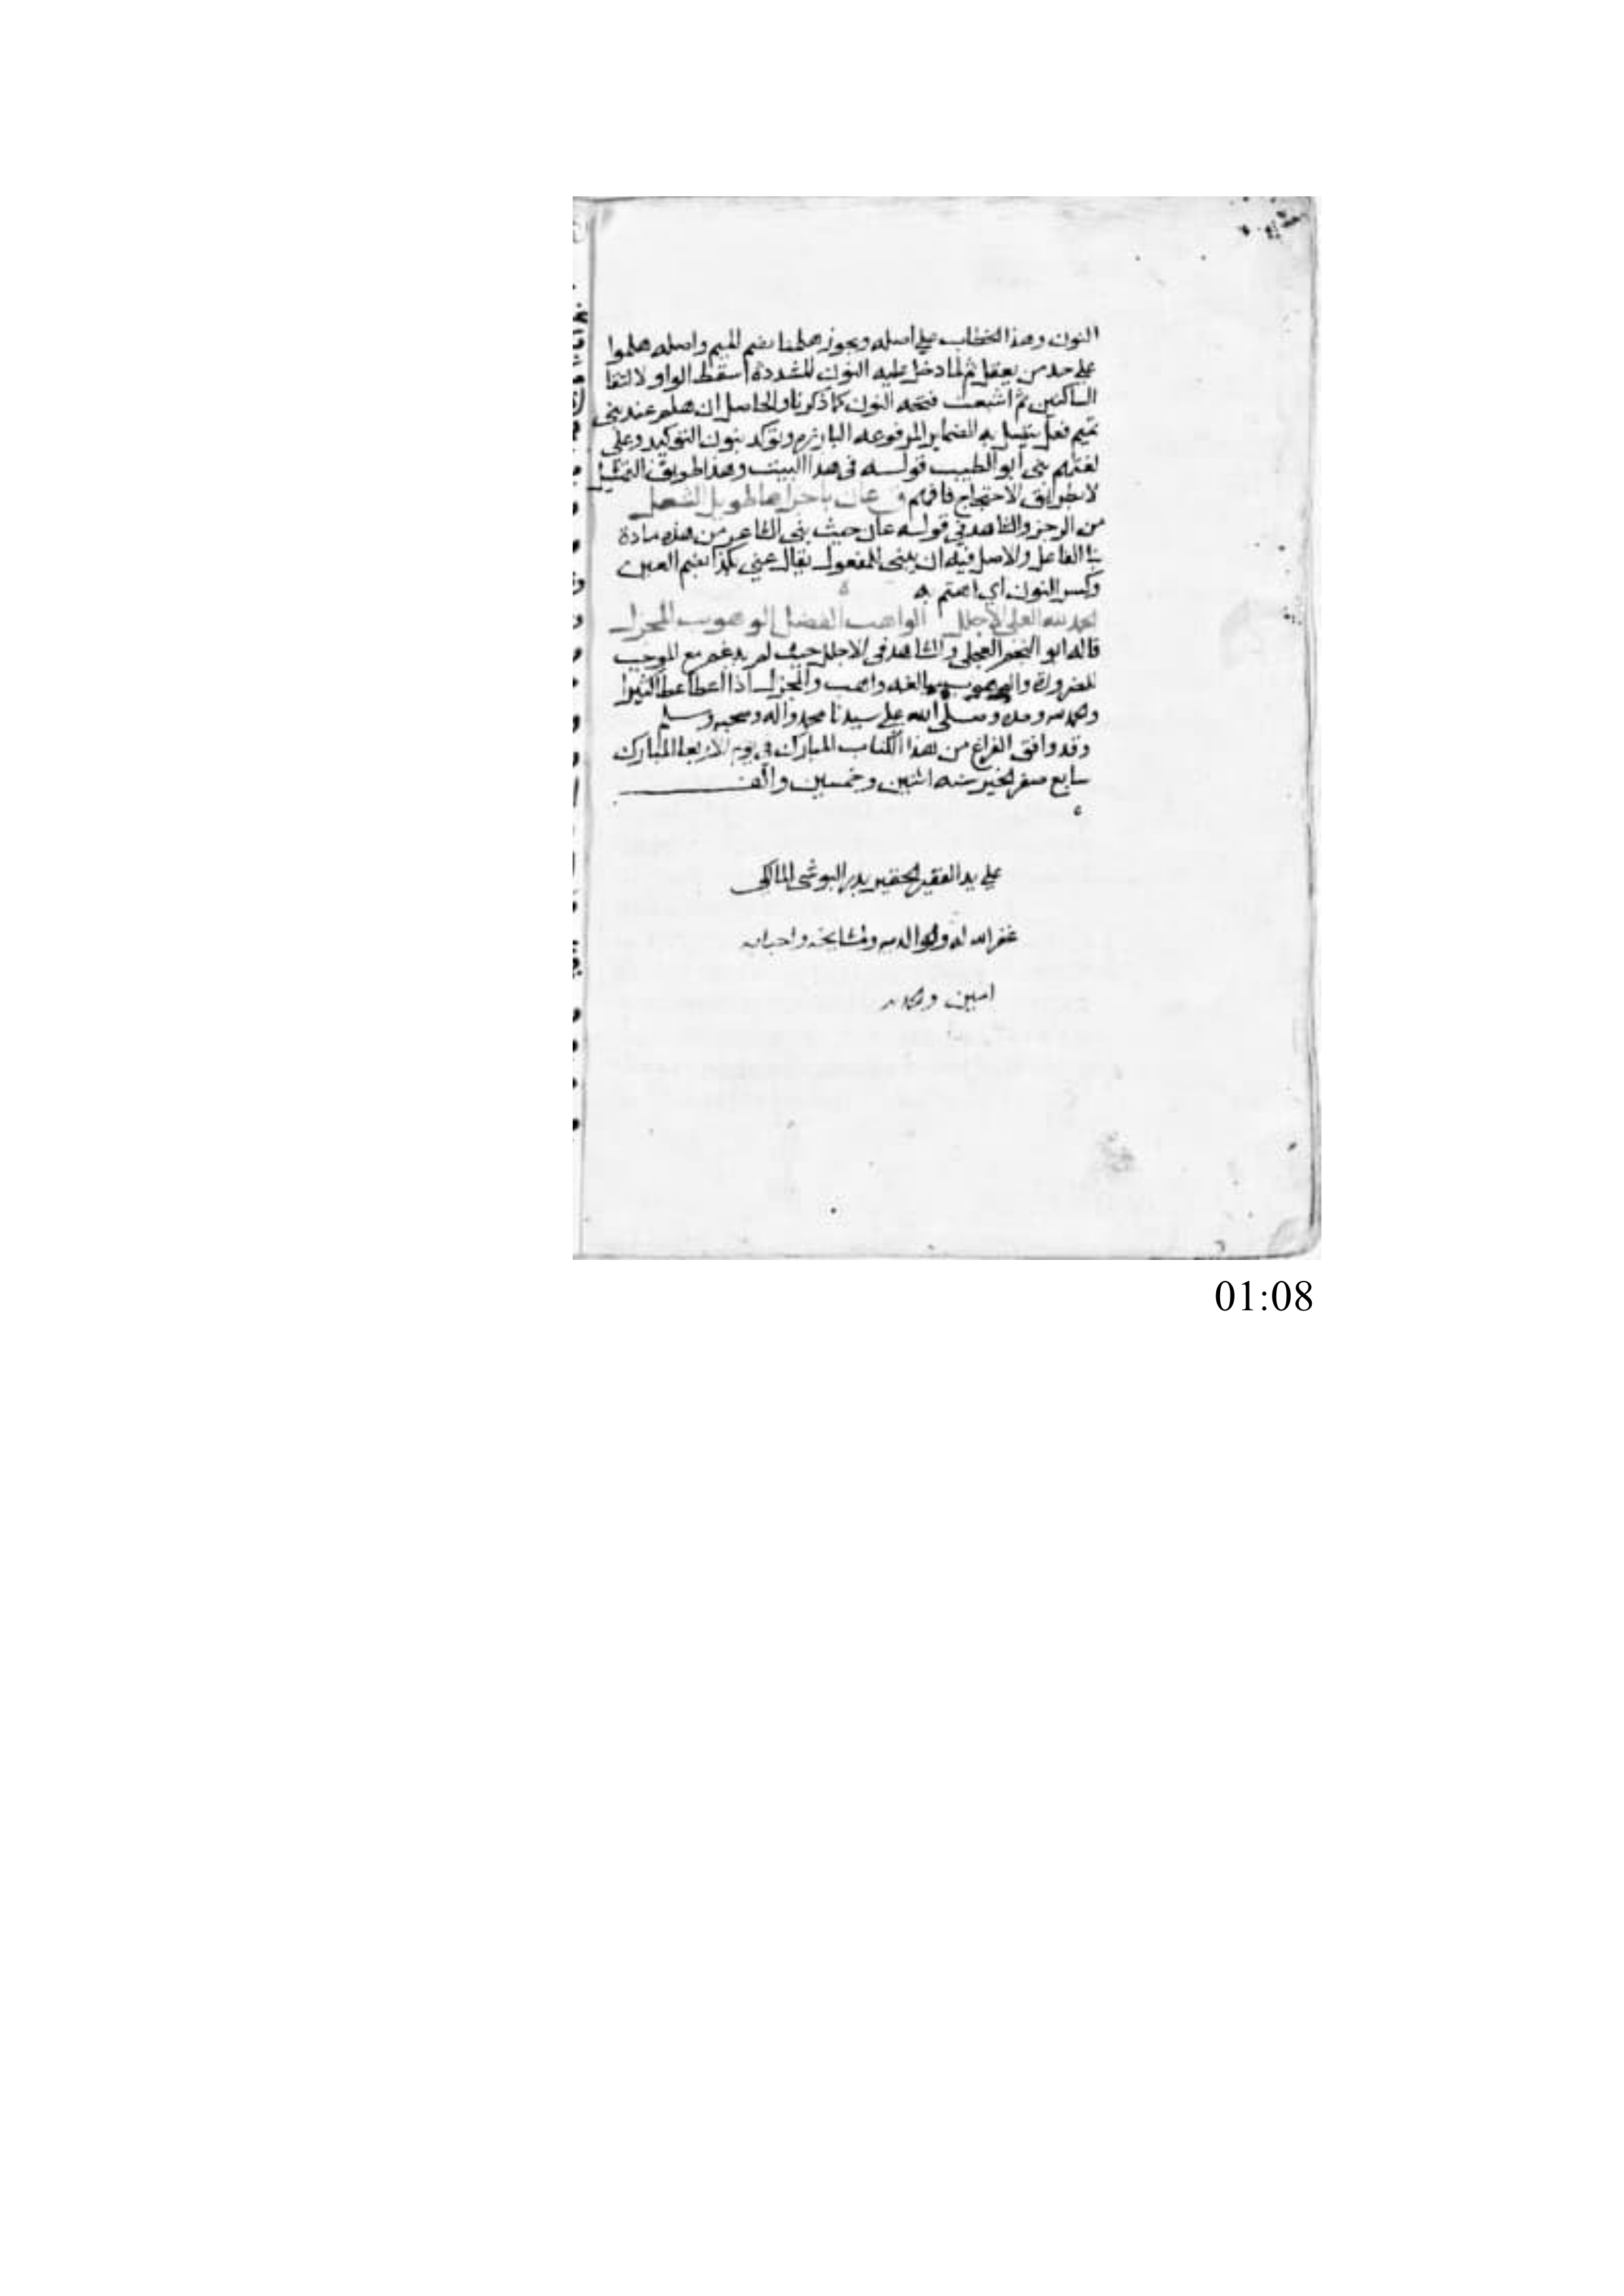 النون وهذا الخطاب علي اصله ويجوز هلمنا بضم الميم واصله هلموا
علي حد من يعقل ثم لما دخل عليه النون المشددة اسقط الواو لالتقا
الساكنين ثم اشبعت فتحه النون كما ذكرنا والحاصل ان هلم عند بني
تميم فعل يتصل به الضماير المرفوعه البارزه وتؤكد بنون التوكيد وعلي
لغتهم بني ابو الطيب قوله في هذا البيت وهذا طريق التمثيل
لا بطريق الاحتجاج فافهم عان باخراها طويل الشغل
من الرجز والشاهد في قوله عان حيث بني الشاعر من هذه مادة
بنا الفاعل والاصل فيه ان يبني للمفعول يقال عني بكذا بضم العين
وكسر النون اي اهتم به
الحمد لله العلي الاجلل الواهب الفضل الوهوب المجزل
قاله ابو النجم العجلي والشاهد في الاجلل حيث لم يدغم مع الموجب
للضرورة والوهوب مبالغه واهب والمجزل اذا اعطا عطا كثيرا
والحمد لله وحده وصلي الله علي سيدنا محمد واله وصحبه وسلم
وقد وافق الفراغ من هذا الكتاب المبارك في يوم الاربعا المبارك
سابع صفر الخير سنه اثنين وخمسين والف
علي يد الفقير الحقير بدر البوشي المالكي
غفر الله له ولوالديه ومشايخه واحبابه
امين والحمد لله
01:08